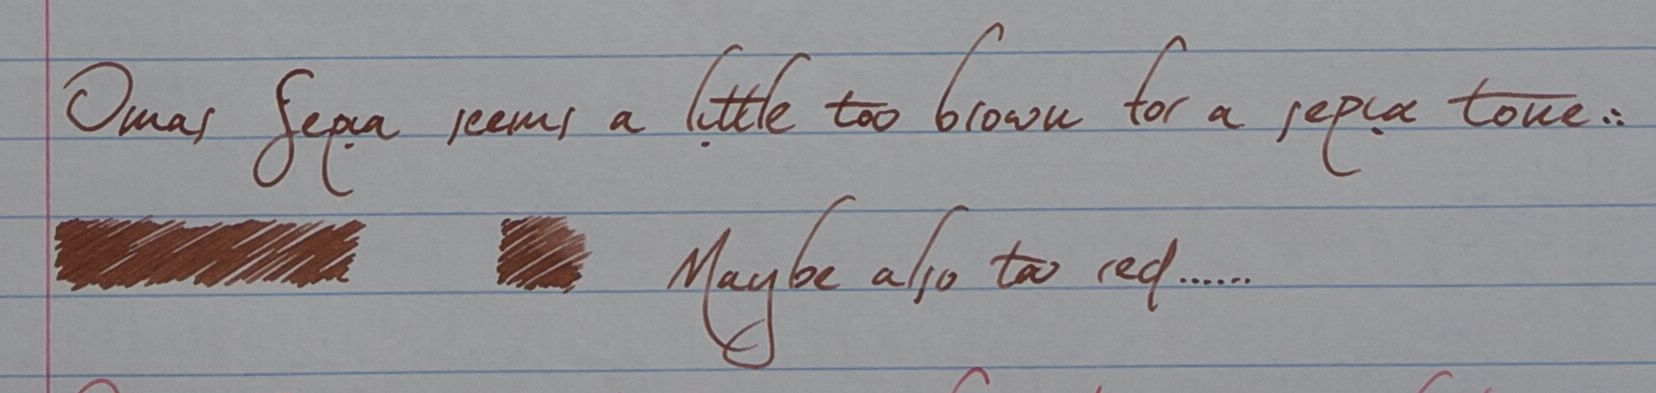 Omas Sepia seems a little too brown for a sepia tone..
Maybe also too red......